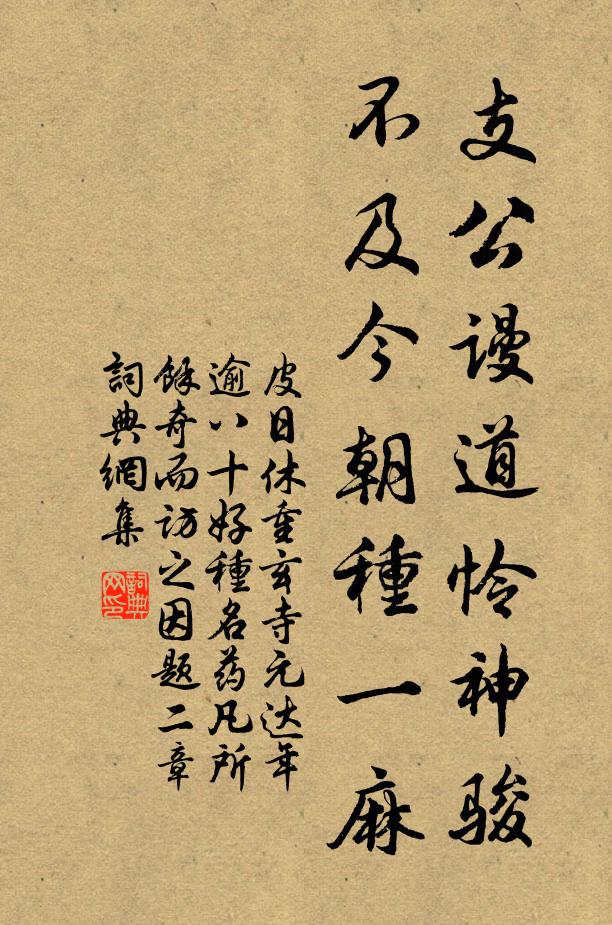 支公谩道怜神骏
不及今朝種一麻
皮日休重玄寺元达年
逾八十好種名药凡所
餘奇而访之因题二章
詞典網集
詞典网印